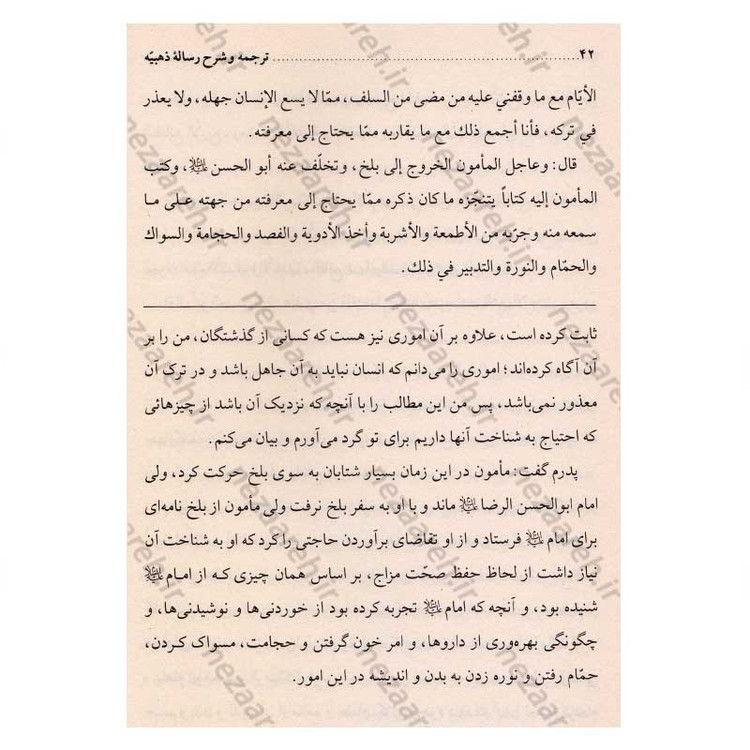 ۴۲ ........................................................... ترجمه و شرح رسالهٔ ذهبیّه
الأيّام مع ما وقفني عليه من مضى من السلف، ممّا لا يسع الإنسان جهله، ولا يعذر
في تركه، فأنا أجمع ذلك مع ما يقاربه ممّا يحتاج إلى معرفته.
قال: وعاجل المأمون الخروج إلى بلخ، وتخلّف عنه أبو الحسن ﷺ، وكتب
المأمون إليه كتاباً يتنجّزه ما كان ذكره ممّا يحتاج إلى معرفته من جهته على ما
سمعه منه وجرّبه من الأطعمة والأشربة وأخذ الأدوية والفصد والحجامة والسواك
والحمّام والنورة والتدبير في ذلك.
ثابت کرده است، علاوه بر آن اموری نیز هست که کسانی از گذشتگان، من را بر
آن آگاه کرده‌اند؛ اموری را می‌دانم که انسان نباید به آن جاهل باشد و در ترک آن
معذور نمی‌باشد، پس من این مطالب را با آنچه که نزدیک آن باشد از چیزهائی
که احتیاج به شناخت آنها داریم برای تو گرد می‌آورم و بیان می‌کنم.
پدرم گفت: مأمون در این زمان بسیار شتابان به سوی بلخ حرکت کرد، ولی
امام ابوالحسن الرضا ﷺ ماند و با او به سفر بلخ نرفت ولی مأمون از بلخ نامه‌ای
برای امام ﷺ فرستاد و از او تقاضای برآوردن حاجتی را کرد که او به شناخت آن
نیاز داشت از لحاظ حفظ صحّت مزاج، بر اساس همان چیزی که از امام ﷺ
شنیده بود، و آنچه که امام ﷺ تجربه کرده بود از خوردنی‌ها و نوشیدنی‌ها، و
چگونگی بهره‌وری از داروها، و امر خون گرفتن و حجامت، مسواک کردن،
حمّام رفتن و نوره زدن به بدن و اندیشه در این امور.
nezaareh.ir